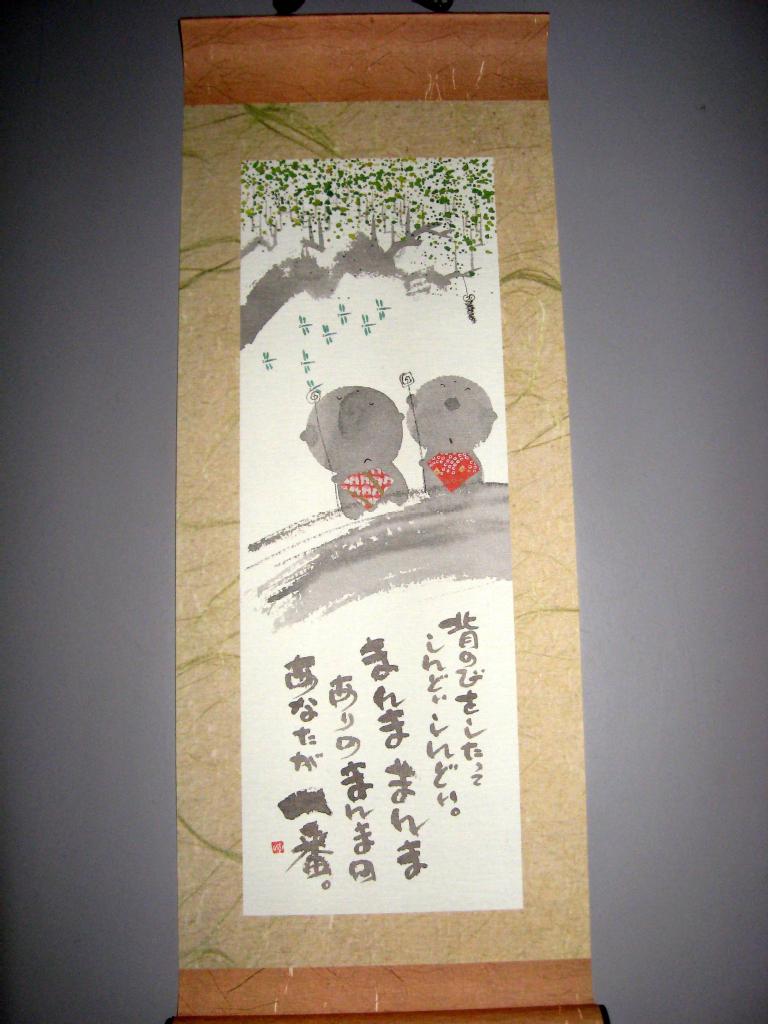 背のびをしたって
しんどいしんどい。
まんままんま
ありのまんまの
あなたが一番。